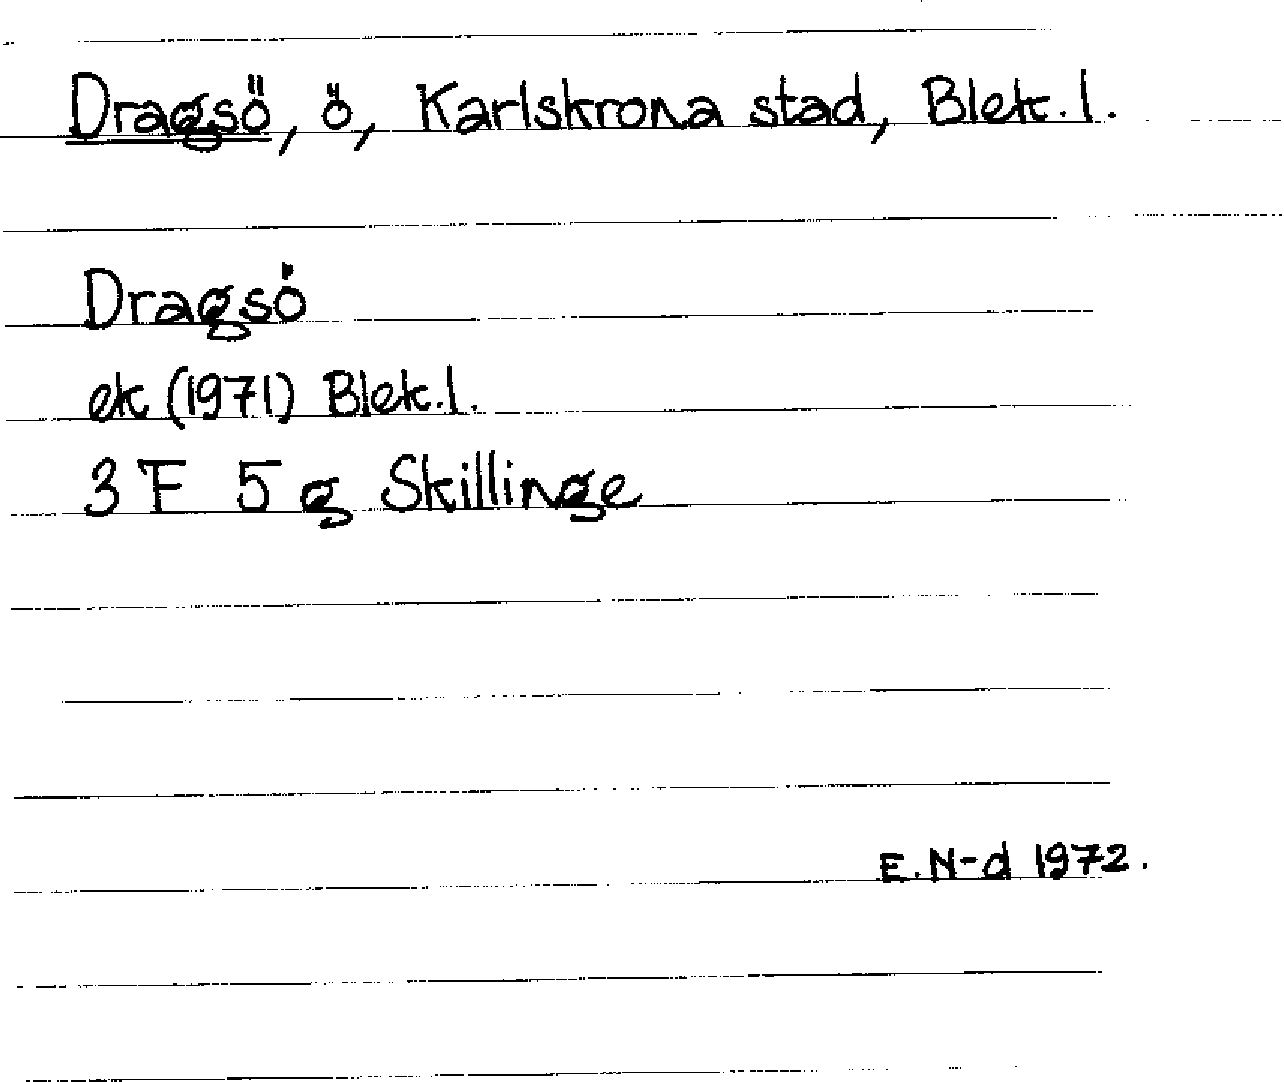 Dragsö, ö, Karlskrona stad, Blek. l.
Dragsö
ek (1971) Blek. l.
3 F 5 g Skillinge
E. N-d 1972.